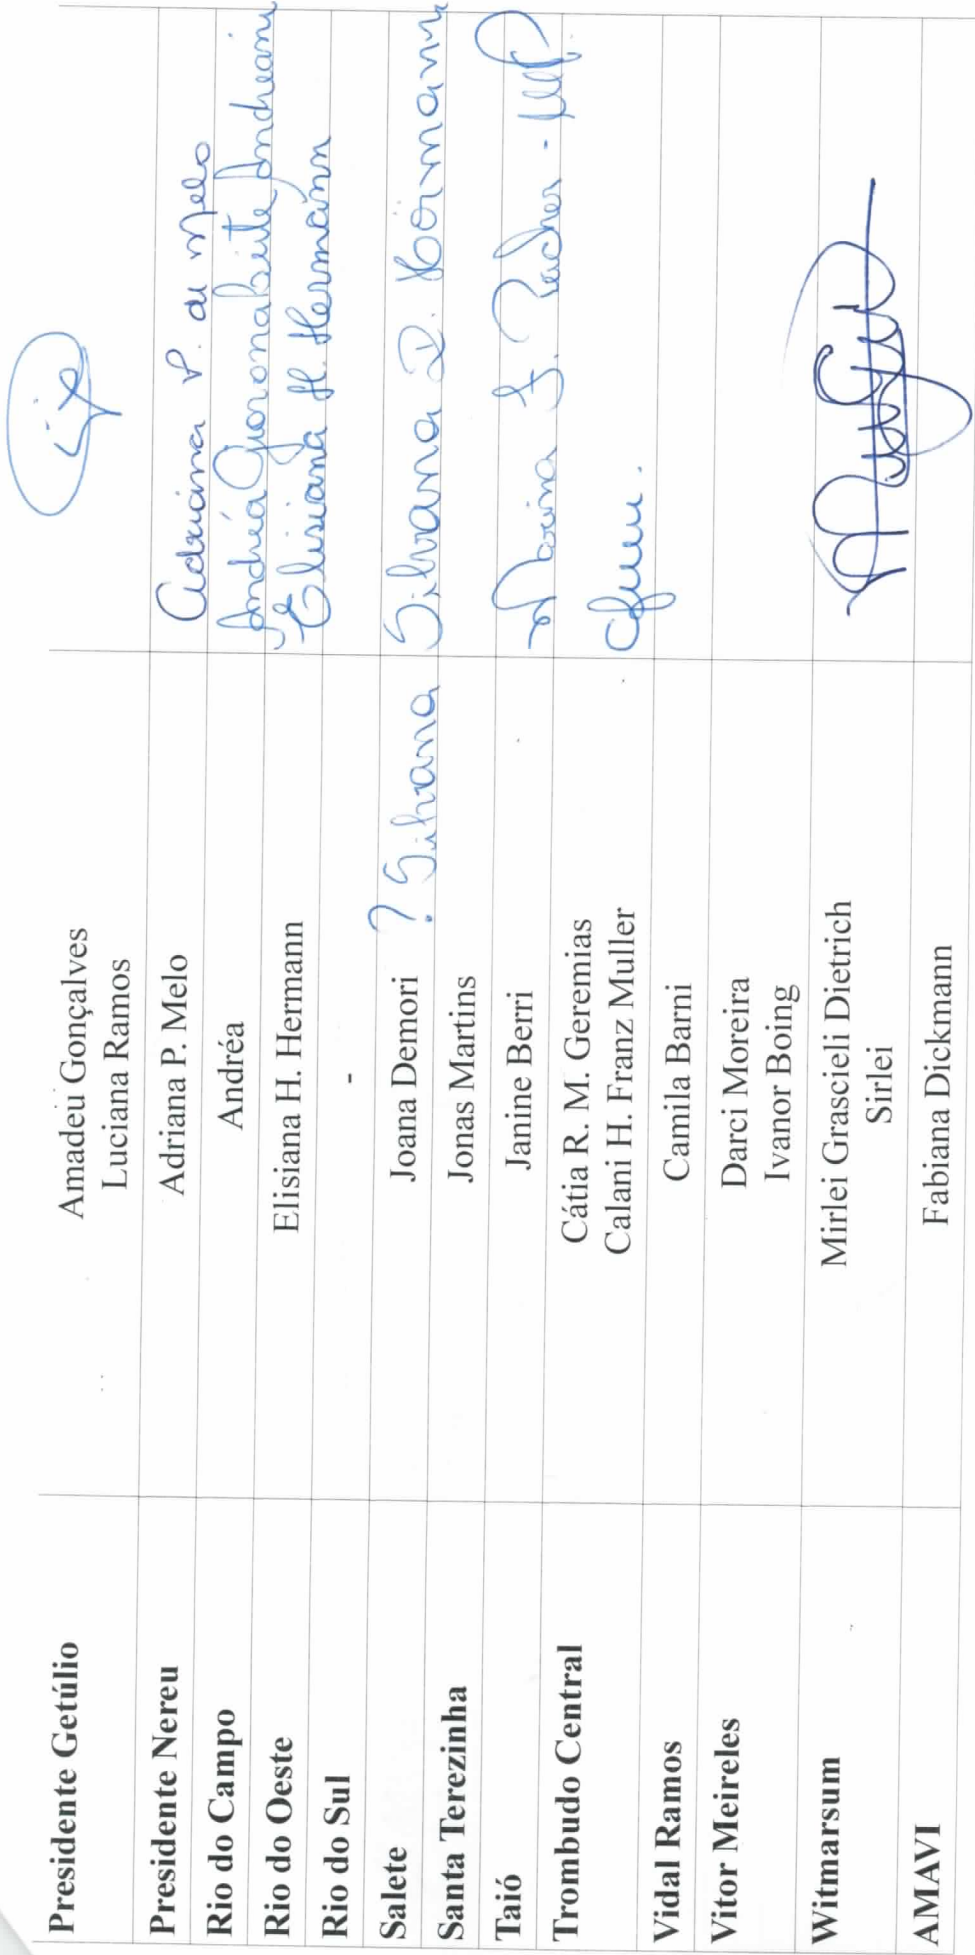 Presidente Getúlio Amadeu Gonçalves
Luciana Ramos
Presidente Nereu Adriana P. Melo Adriana P. de Melo
Rio do Campo Andréa Andréa
Rio do Oeste Elisiana H. Hermann Elisiana H. Hermann
Rio do Sul -
Salete Joana Demori ? Silvana Silvana D.
Santa Terezinha Jonas Martins
Taió Janine Berri
Trombudo Central Cátia R. M. Geremias
Calani H. Franz Muller
Vidal Ramos Camila Barni
Vitor Meireles Darci Moreira
Ivanor Boing
Witmarsum Mirlei Grascieli Dietrich
Sirlei
AMAVI Fabiana Dickmann